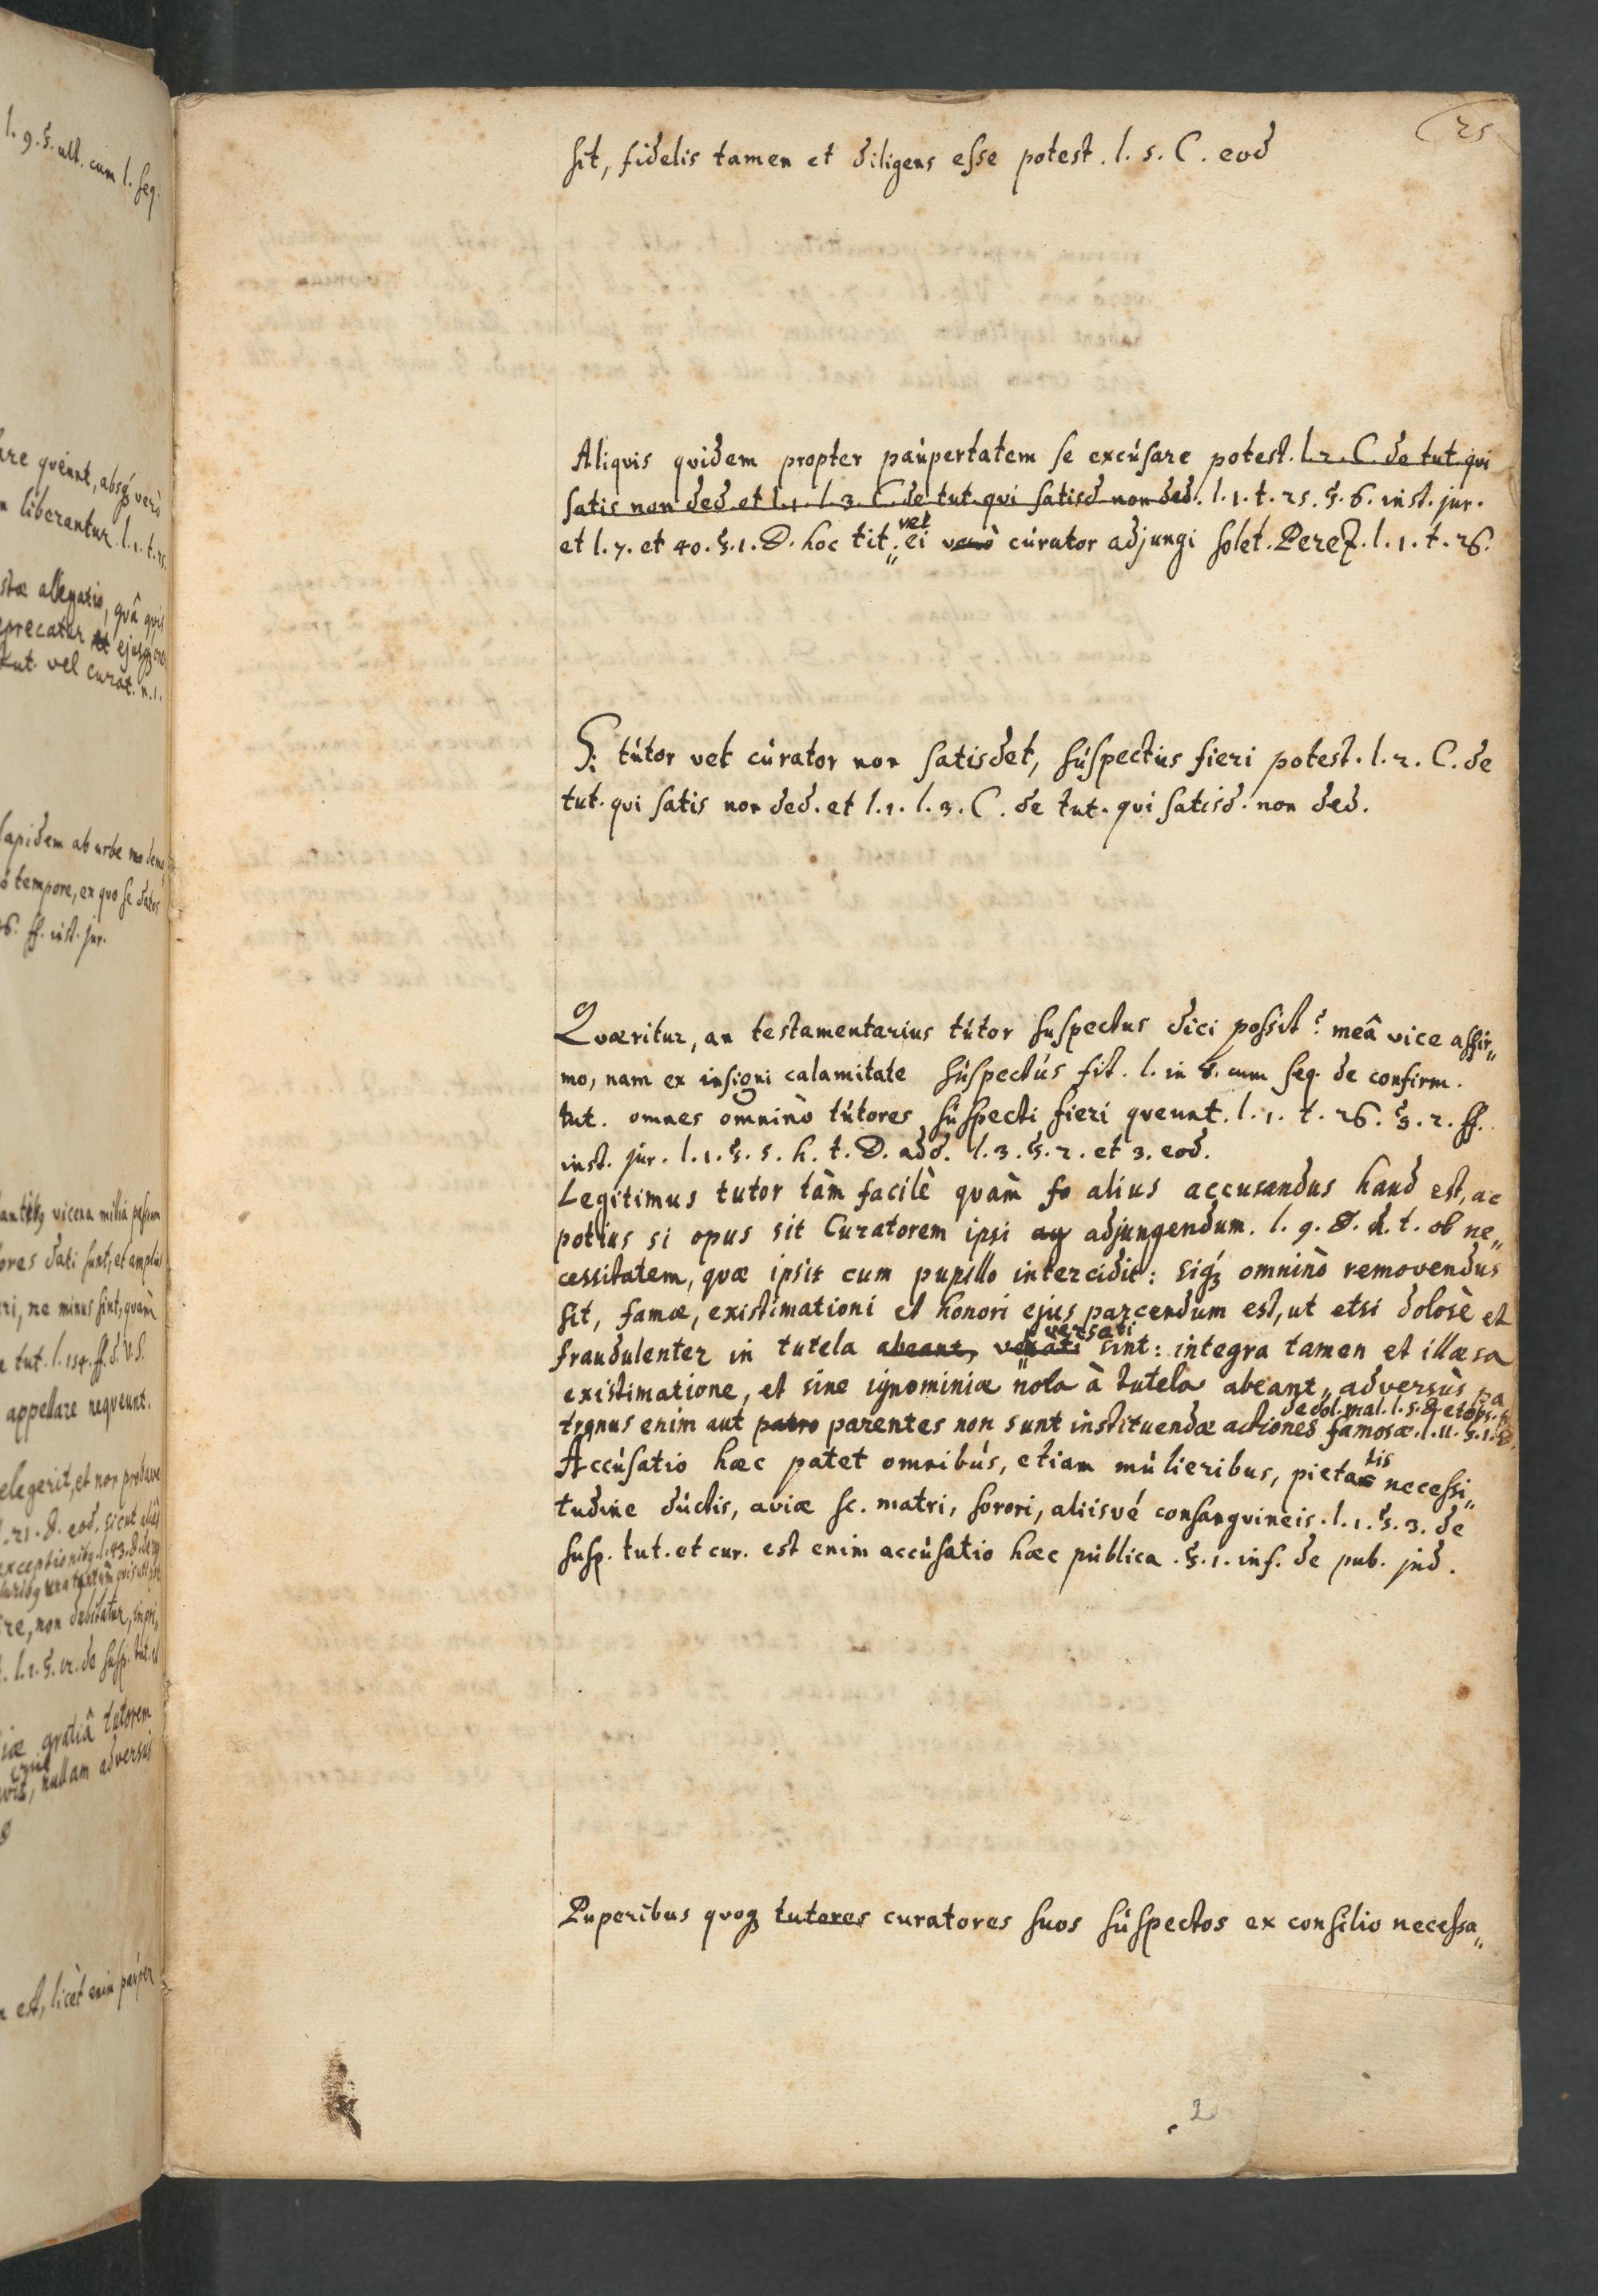 25
sit, fidelis tamen et diligens esse potest. l. 5. C. eod
Aliqvis qvidem propter paupertatem se excusare potest. l. 2. C. de tut. qvi
satis non ded. et l. 1. l. 3. C. de tut. qvi satisd non ded. l. 1. t. 25. §. 6. inst. jur.
et l. 7. et 40. §. 1. D. hoc tit. ei vel verò curator adjungi solet. Perez. l. 1. t. 26.
Si tutor vel curator non satisdet, suspectus fieri potest. l. 2. C. de
tut. qvi satis non ded. et l. 1. l. 3. C. de tut. qvi satisd. non ded.
Qværitur, an testamentarius tutor suspectus dici possit? meâ vice affir„
mo, nam ex insigni calamitate suspectus fit. l. in D. cum seq. de confirm.
tut. omnes omninò tutores suspecti fieri qveunt. l. 1. t. 26. §. 2. ff.
inst. jur. l. 1. §. 5. h. t. D. add. l. 3. §. 2. et 3. eod.
Legitimus tutor tàm facilè qvàm fo alius accusandus haud est, ac
potius si opus sit Curatorem ipsi ag adjungendum. l. 9. D. d. t. ob ne„
cessitatem, qvæ ipsis cum pupillo intercidit: siq; omninò removendus
sit, famæ, existimationi et honori ejus parcendum est, ut etsi dolosè et
fraudulenter in tutela abeant, versati sint: integra tamen et illæsa
existimatione, et sine ignominiæ nota à tutela abeant„ adversùs pa
tronus enim aut patro parentes non sunt instituendæ actiones de dol. mal. l. 5. famosæ. l. 11. §. 1. D.
Accusatio hæc patet omnibus, etiam mulieribus, pietatis necessi„
tudine ductis, aviæ sc. matri, sorori, aliisvé consangvineis. l. 1. §. 3. de
susp. tut. et cur. est enim accusatio hæc publica. §. 1. inf. de pub. jud.
Puperibus qvoq; tutores curatores suos suspectos ex consilio necessa„
2
l. 9. §. ult. cum l. seq.
qveunt, absq; verò
liberantur. l. 1. t. 25.
allegatio, qvâ qvis
tut. vel curat. n. 1.
lapidem ab urbe
tempore, ex quo se
ff. inst. jur.
vicena millia passuum
dati sunt, et amplius
ne minus sint, qvàm
tut. l. 154. ff. d. V. S.
appellare neqveunt.
elegerit, et non
21. D. eod. sicut aliàs
exceptionib9. l. 43. D.
non dubitatur,
l. 1. §. 12. de susp. tut. et
gratiâ tutorem
nullam adversùs
est, licèt enim pauper